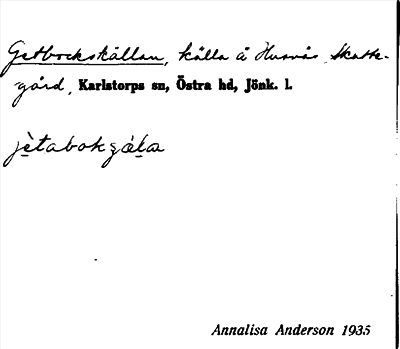 Getbockskällan, källa å Husnäs Skatte-
gård, Karlstorps sn, Östra hd, Jönk. l.
jètabokʂála
Annalisa Anderson 1935